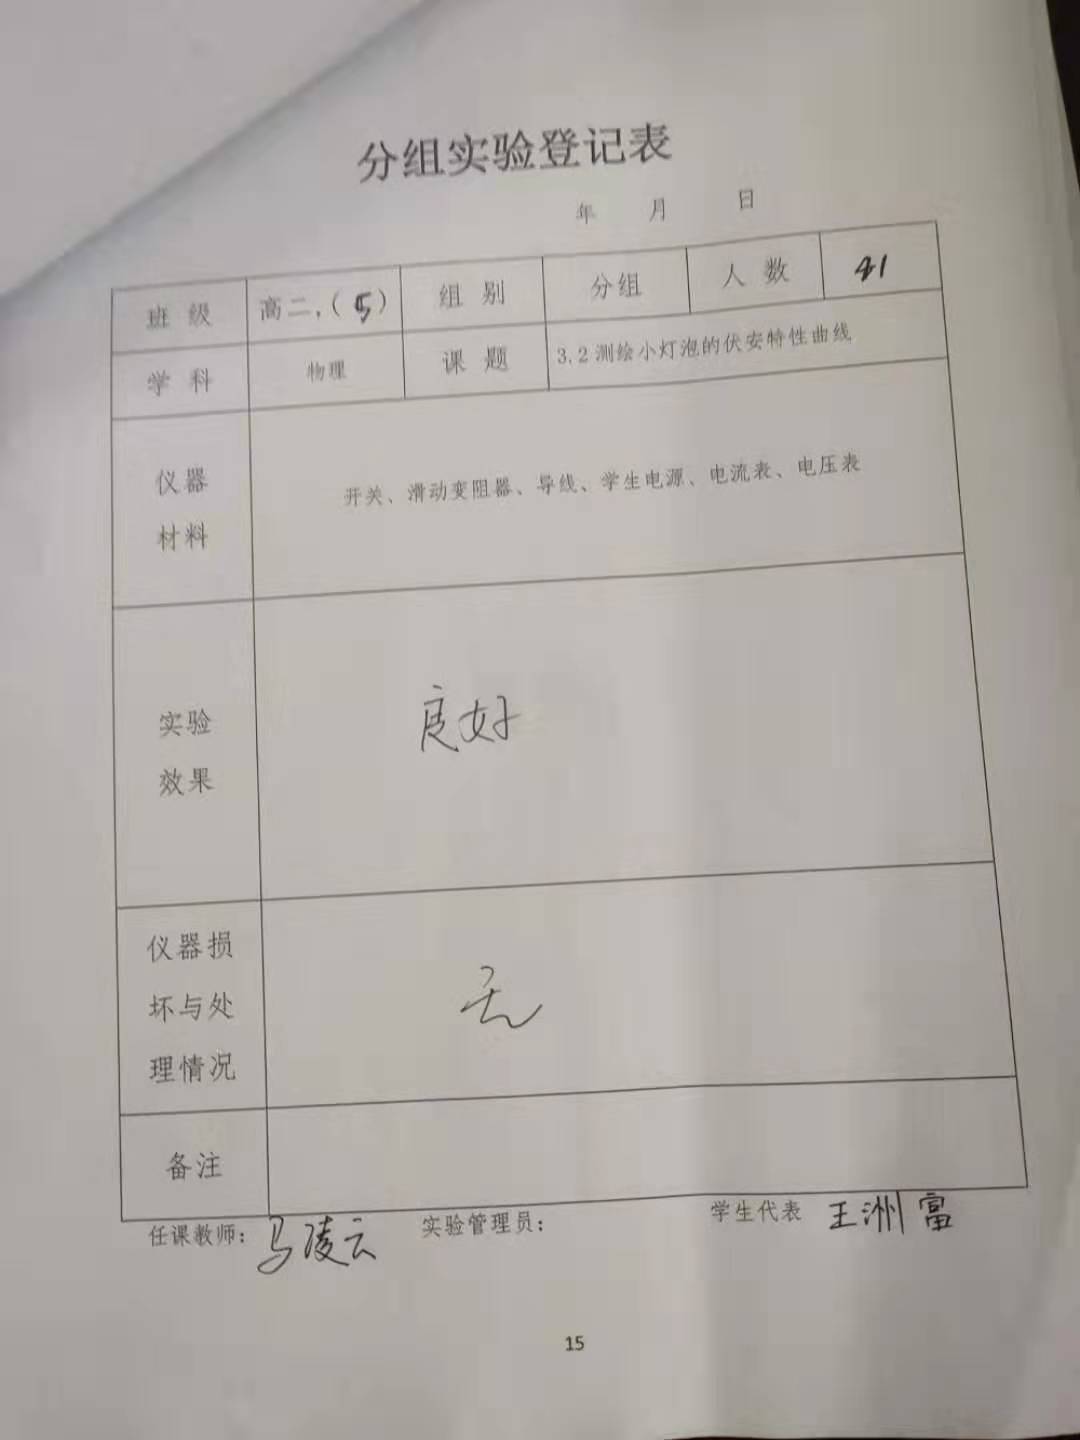 分组实验登记表
年 月 日
班 级 高二,（5） 组 别 分组 人 数 41
学 科 物理 课 题 3.2测绘小灯泡的伏安特性曲线
仪器
材料
开关、滑动变阻器、导线、学生电源、电流表、电压表
实验
效果
良好
仪器损
坏与处
理情况
无
备注
任课教师：马凌云 实验管理员： 学生代表 王洲富
15